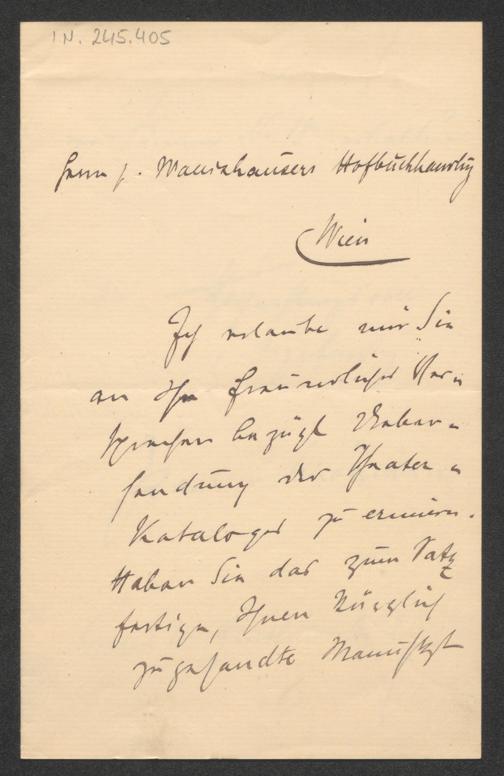 I N. 245.405
Herrn J. Wallishaussers Hofbuchhandlg
Wien
Ich erlaube mir Sie
an Ihr freundliches Ver-
sprechen bezügl Ueber-
sendung des Theater-
Kataloges zu erinnern.
Haben Sie das zum Satz
fertige, Ihnen kürzlich
zugesandte Manuskript